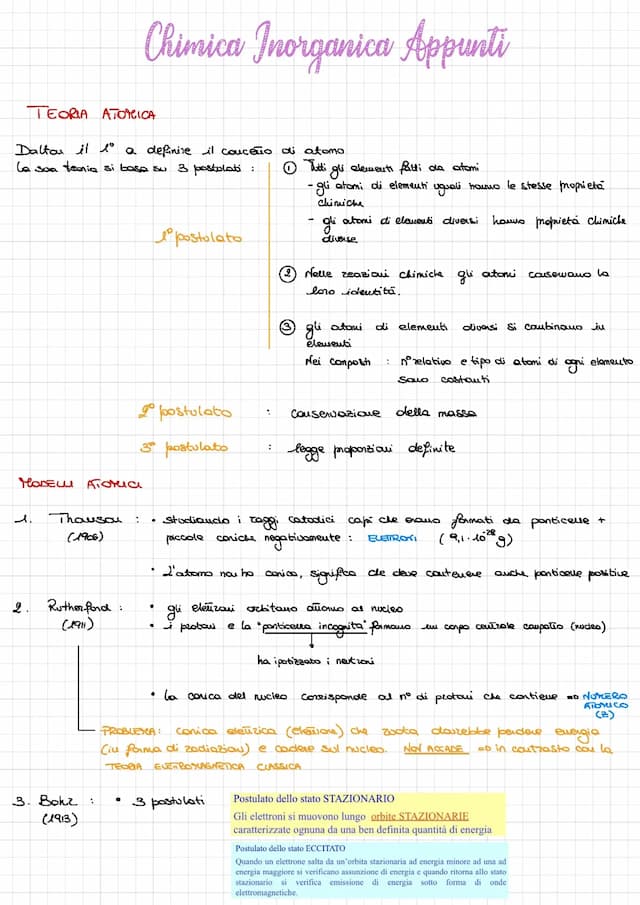 Chimica Inorganica Appunti
TEORIA ATOMICA
Dalton il 1° a definire il concetto di atomo
La sua teoria si basa su 3 postulati :
1° postulato
① Tutti gli elementi fatti da atomi
- gli atomi di elementi uguali hanno le stesse proprietà
chimiche
- gli atomi di elementi diversi hanno proprietà chimiche
diverse
② Nelle reazioni chimiche gli atomi conservano la
loro identità.
③ gli atomi di elementi diversi si combinano in
elementi
Nei composti : n° relativo e tipo di atomi di ogni elemento
sono costanti
2° postulato : conservazione della massa
3° postulato : legge proporzioni definite
MODELLI ATOMICI
1. Thomson : • studiando i raggi catodici capì che erano formati da particelle +
(1906) piccole cariche negativamente : ELETTRONI (9,1·10⁻²⁸ g)
• L'atomo non ha carica, significa che deve contenere anche particelle positive
2. Rutherford : • gli elettroni orbitano attorno al nucleo
(1911) • i protoni e la "particella incognita" formano un corpo centrale compatto (nucleo)
ha ipotizzato i neutroni
• la carica del nucleo corrisponde al n° di protoni che contiene => NUMERO
ATOMICO
(Z)
PROBLEMA: carica elettrica (elettrone) che ruota dovrebbe perdere energia
(in forma di radiazioni) e cadere sul nucleo. NON ACCADE => in contrasto con la
TEORIA ELETTROMAGNETICA CLASSICA
3. Bohr : • 3 postulati
(1913)
Postulato dello stato STAZIONARIO
Gli elettroni si muovono lungo orbite STAZIONARIE
caratterizzate ognuna da una ben definita quantità di energia
Postulato dello stato ECCITATO
Quando un elettrone salta da un'orbita stazionaria ad energia minore ad una ad
energia maggiore si verificano assunzione di energia e quando ritorna allo stato
stazionario si verifica emissione di energia sotto forma di onde
elettromagnetiche.